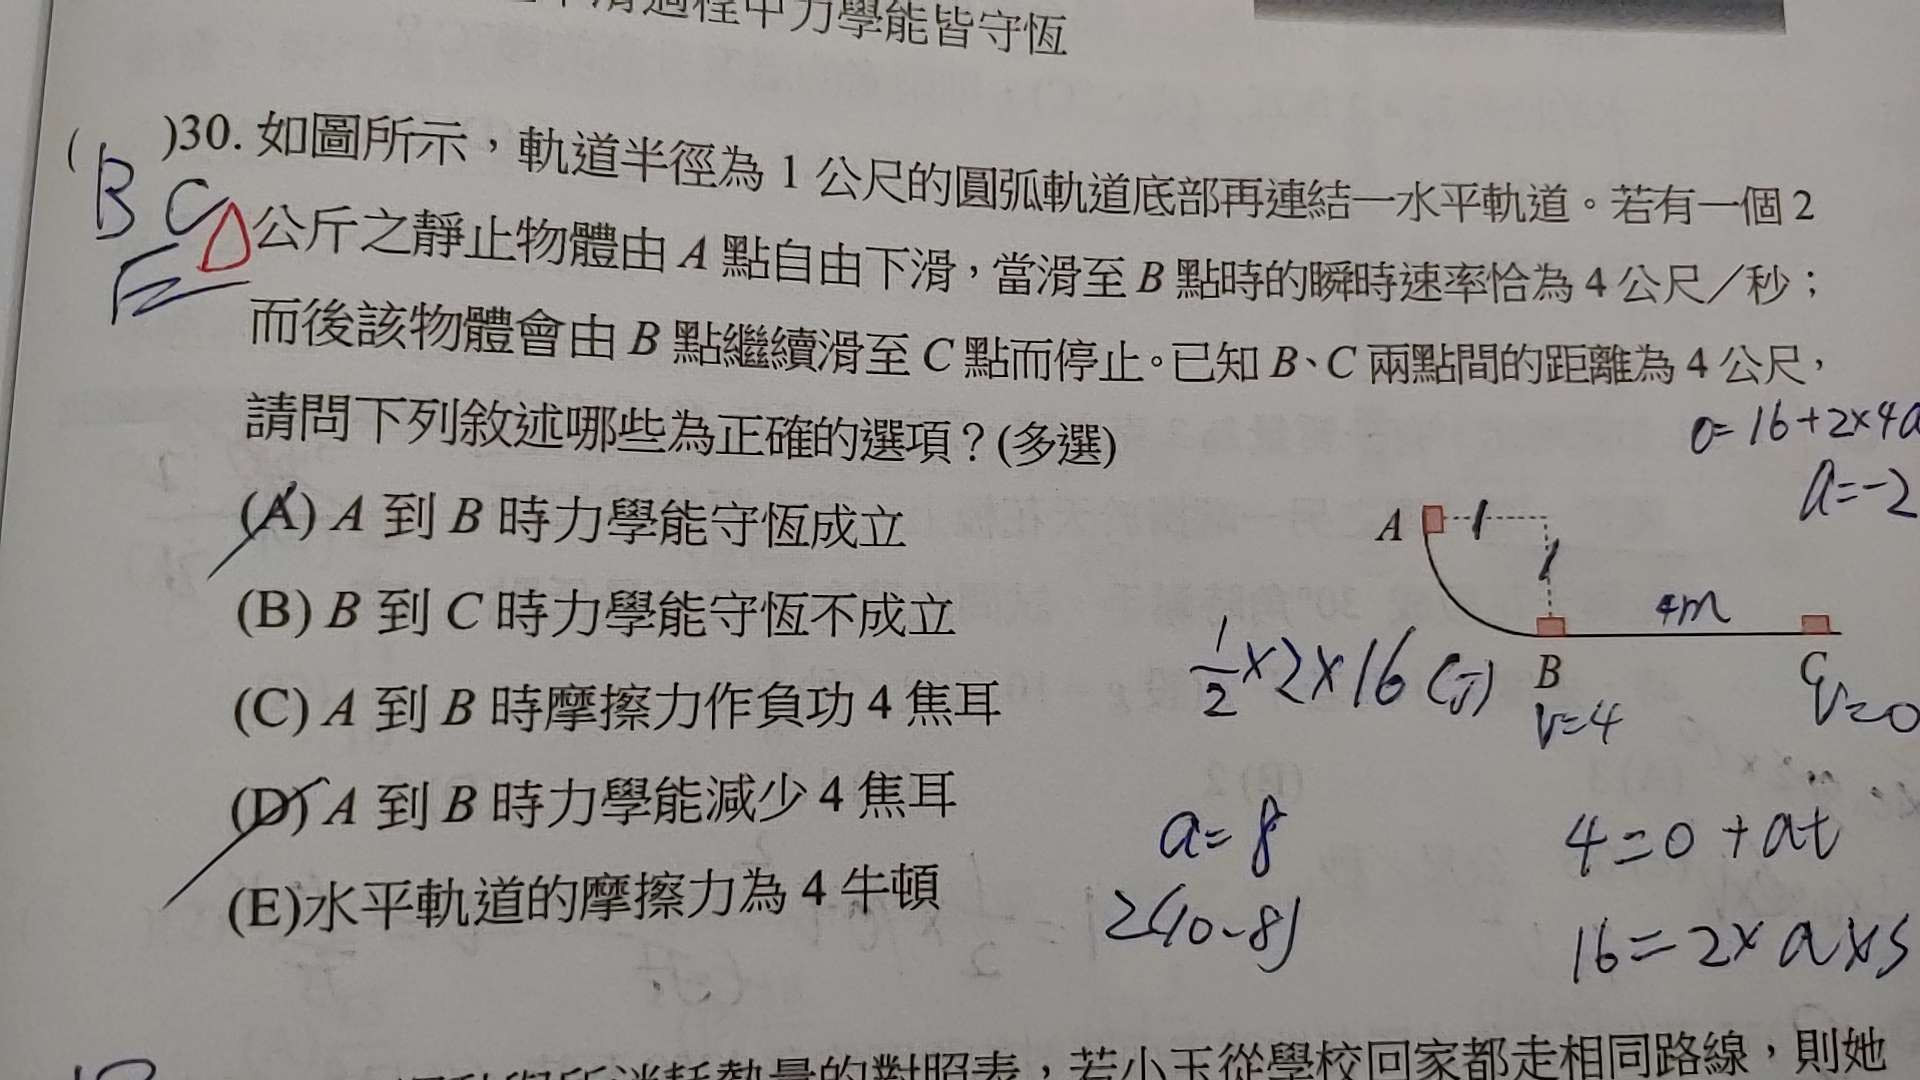 滑過程中力學能皆守恆
( )30. 如圖所示，軌道半徑為 1 公尺的圓弧軌道底部再連結一水平軌道。若有一個 2
B C D
E
公斤之靜止物體由 A 點自由下滑，當滑至 B 點時的瞬時速率恰為 4 公尺／秒；
而後該物體會由 B 點繼續滑至 C 點而停止。已知 B、C 兩點間的距離為 4 公尺，
請問下列敘述哪些為正確的選項？(多選)
0=16+2×4a
a=-2
(A) A 到 B 時力學能守恆成立
(B) B 到 C 時力學能守恆不成立
(C) A 到 B 時摩擦力作負功 4 焦耳
(D) A 到 B 時力學能減少 4 焦耳
(E)水平軌道的摩擦力為 4 牛頓
A
1
1
4m
B
C
v=4
v=0
1/2×2×16 (J)
a=8
2(10-8)
4=0+at
16=2×a×s
所消耗熱量的對照表，若小玉從學校回家都走相同路線，則她